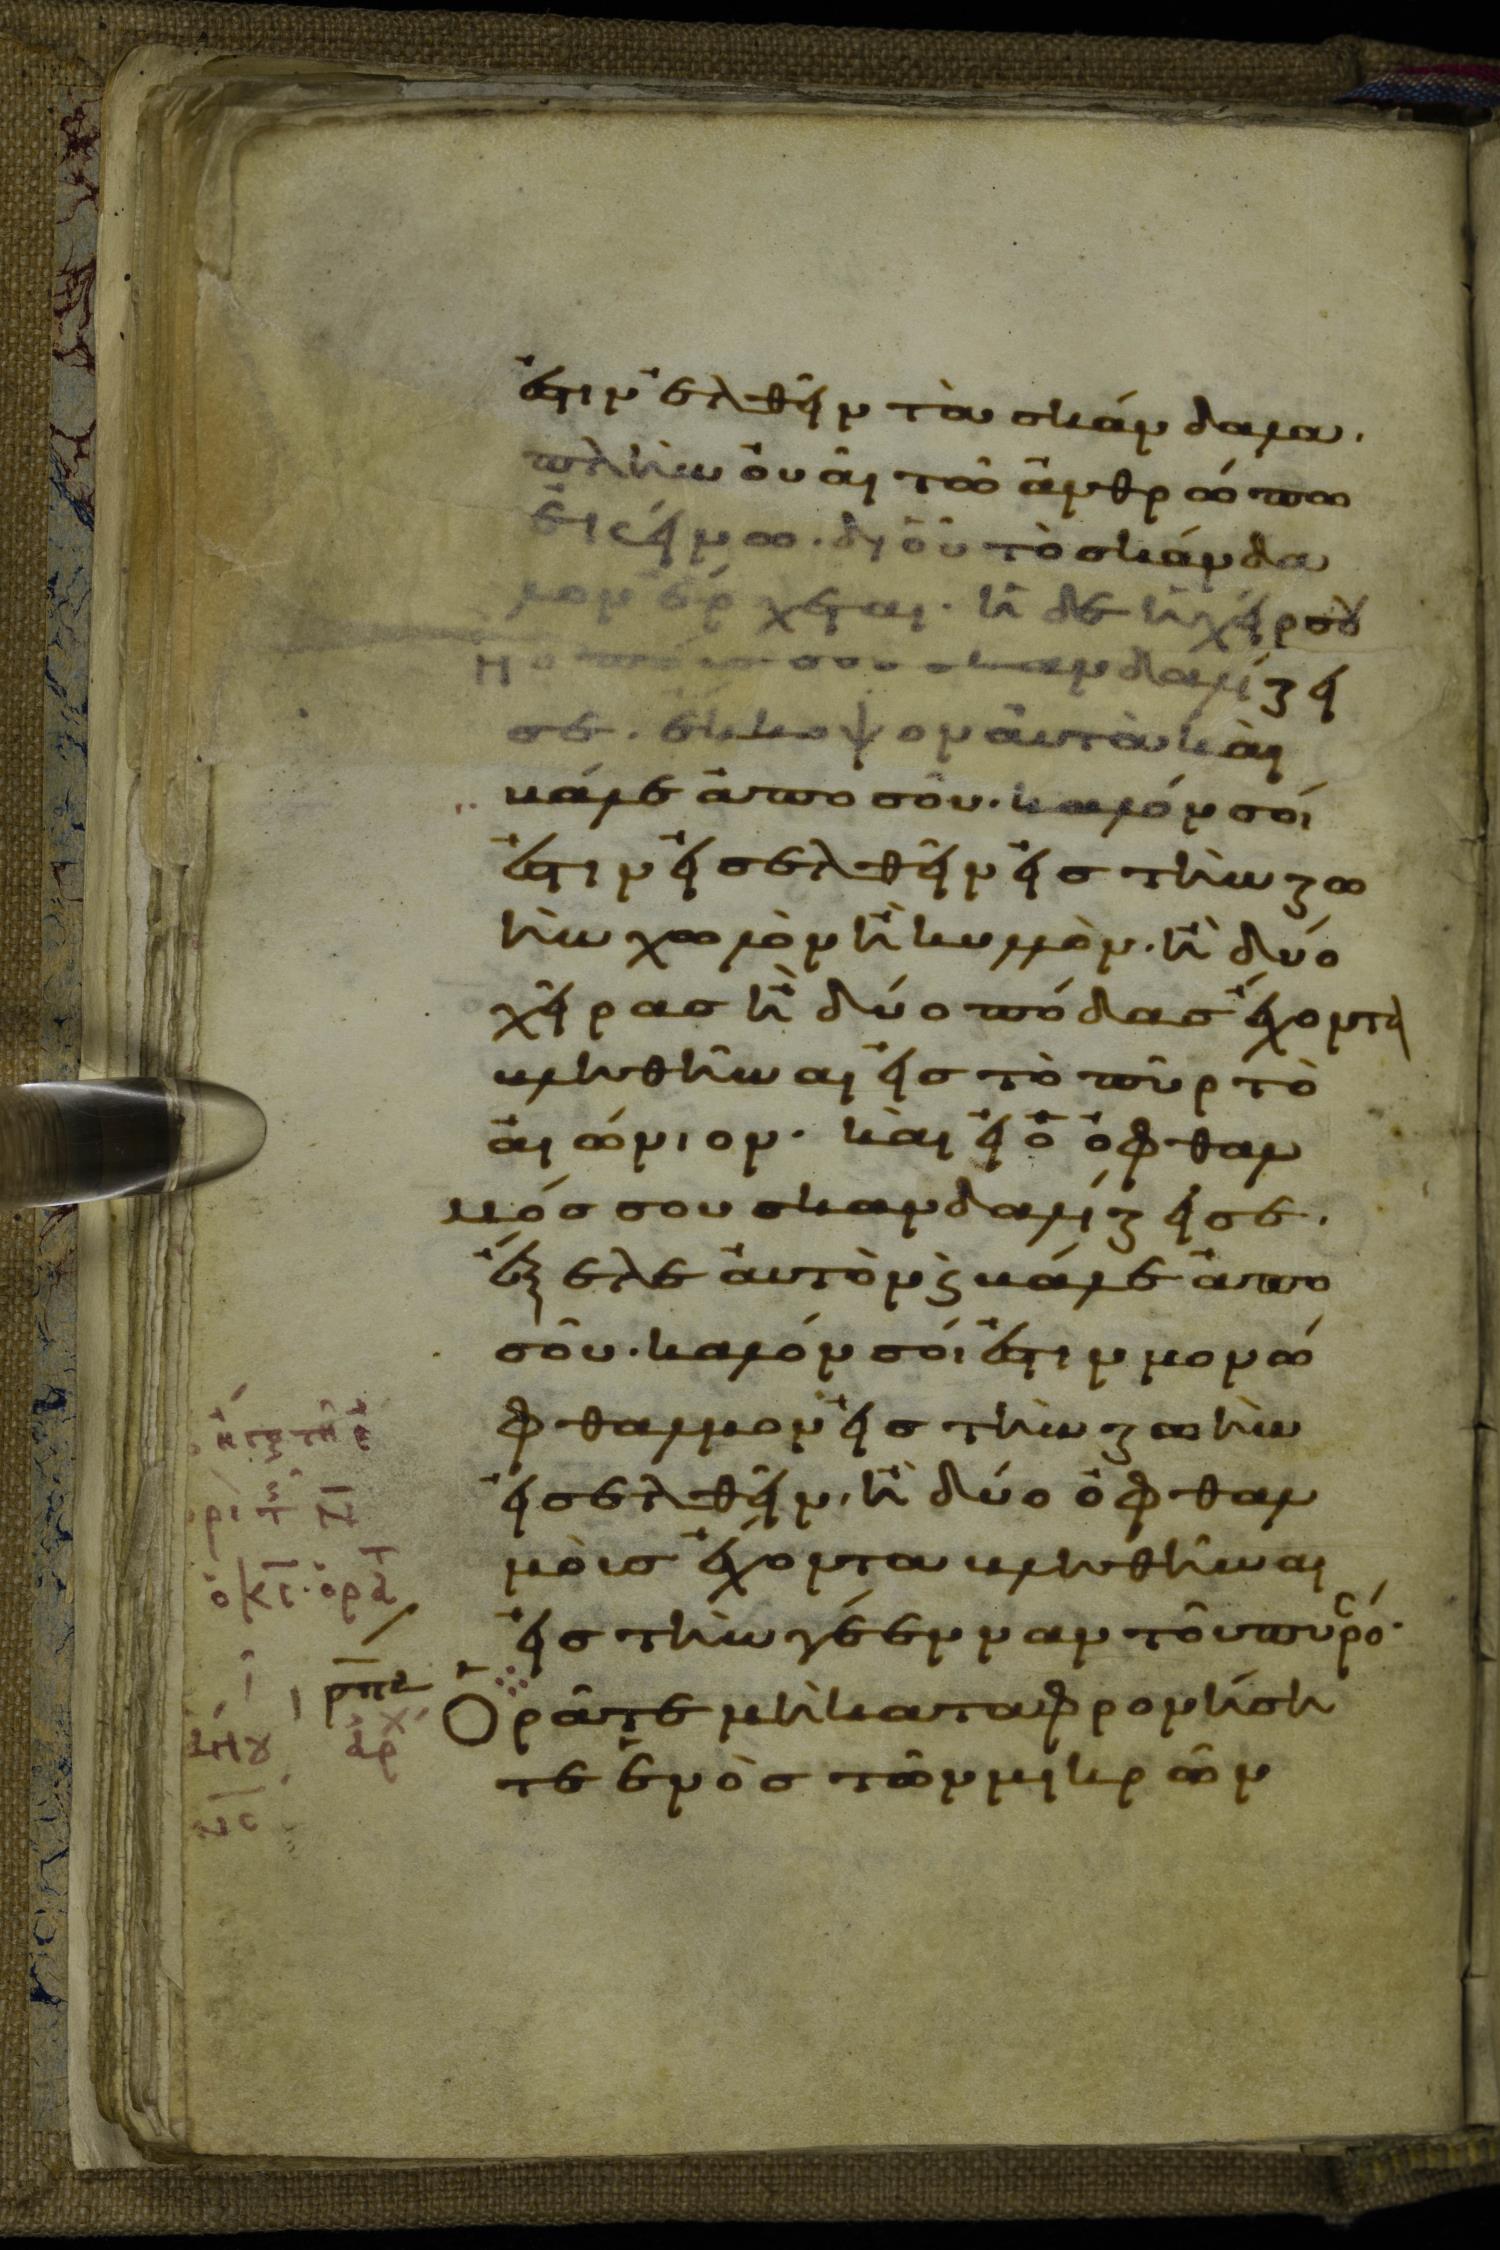 ἐστιν ἐλθεῖν τὰ σκάνδαλα.
πλὴν οὐαὶ τῶ ἀνθρώπω
ἐκείνω. δι οὗ τὸ σκάνδα
λον ἔρχεται. εἰ δὲ ἡ χείρ σου
ἢ ὁ πούς σου σκανδαλίζει
σε. ἔκκοψον αὐτὰ καὶ
βάλε ἀπὸ σοῦ. καλόν σοί
ἐστιν εἰσελθεῖν εἰς τὴν ζω
ὴν χωλὸν ἢ κυλλὸν. ἢ δύο
χεῖρας ἢ δύο πόδας ἔχοντα
βληθῆναι εἰς τὸ πῦρ τὸ
αἰώνιον. καὶ εἰ ὁ ὀφθαλ
μός σου σκανδαλίζει σε.
ἔξελε αὐτὸν ϗ βάλε ἀπο
σοῦ. καλόν σοί ἐστιν μονό
φθαλμον εἰς τὴν ζωὴν
εἰσελθεῖν. ἢ δύο ὀφθαλ
μοὺς ἔχοντα βληθῆναι
εἰς τὴν γέενναν τοῦ πυρός.
ρπβ ἀρχ Ὁρᾶτε μὴ καταφρονήση
τε ἑνὸς τῶν μικρῶν